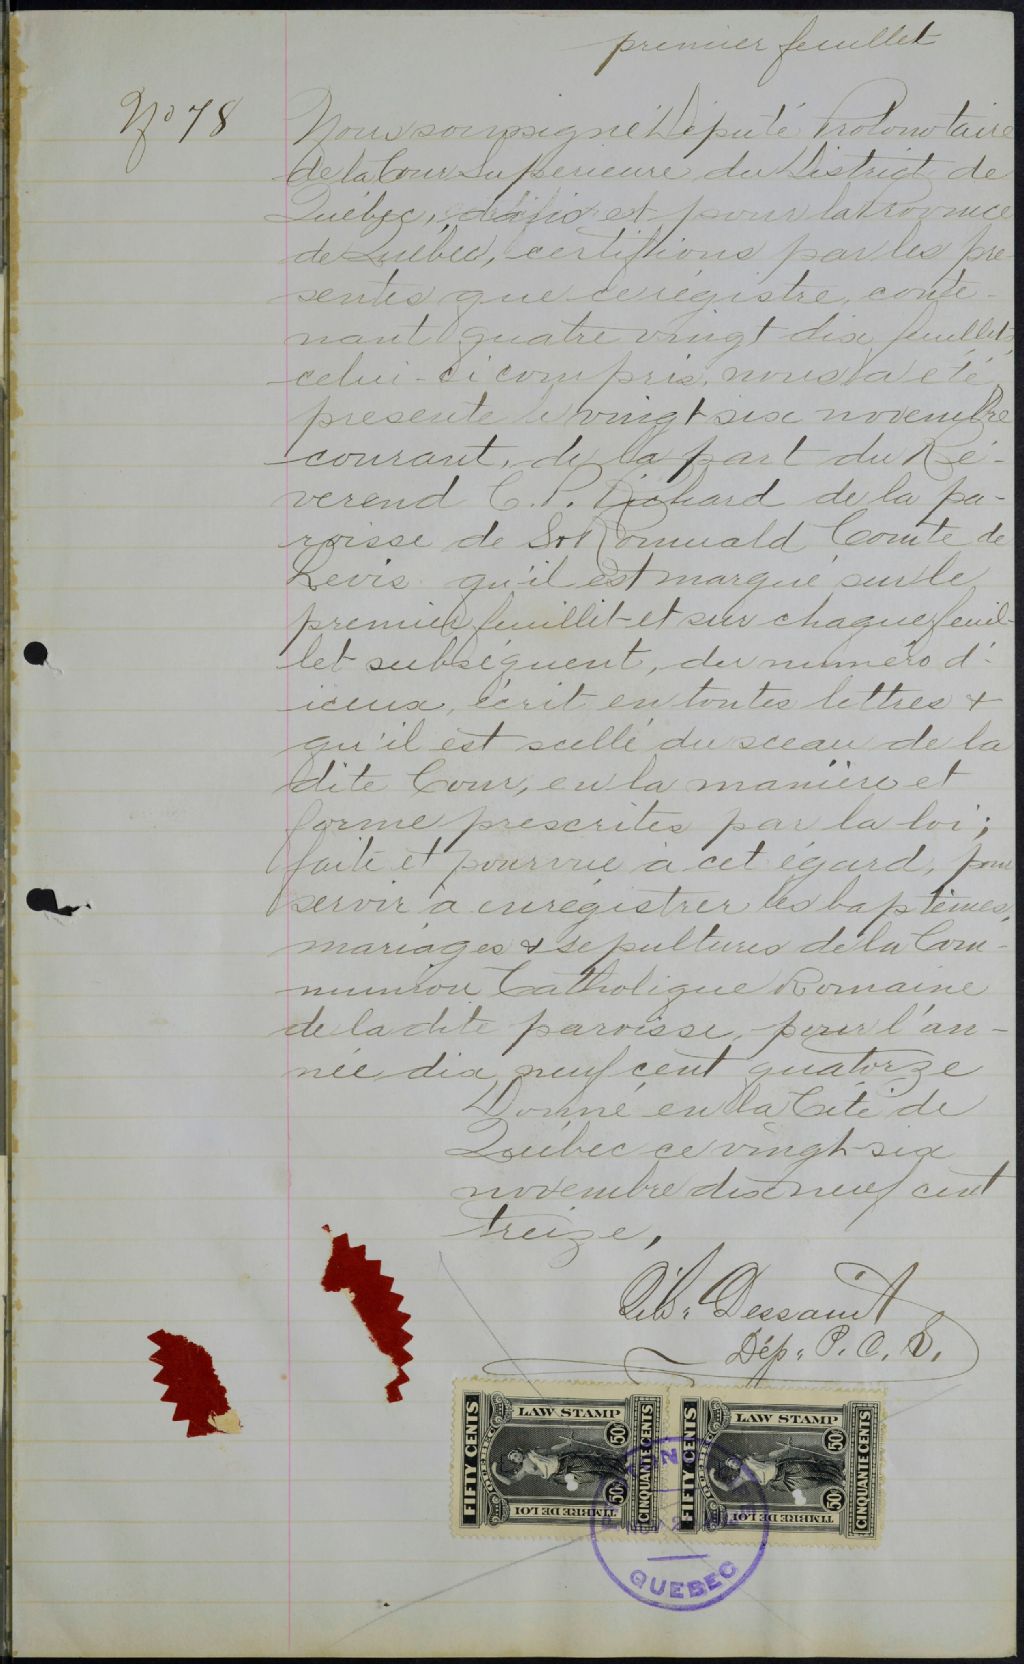 premier feuillet
No 78
Nous soussigné Député Protonotaire
de la Cour Supérieure du District de
Québec, et pour la Province
de Québec, certifions par les pré-
sentes que ce régistre, conte-
nant quatre vingt dix feuillets,
celui-ci compris, nous a été
présenté le vingt six novembre
courant, de la part du Ré-
verend C. P. Richard de la pa-
roisse de St Romuald Comté de
Levis qu'il est marqué sur le
premier feuillet et sur chaque feuil-
let subséquent, du numéro d'-
iceux, écrit en toutes lettres &
qu'il est scellé du sceau de la
dite Cour, en la manière et
forme prescrites par la loi;
faite et pourvue à cet égard, pour
servir à enrégistrer les baptêmes,
mariages & sépultures de la Com-
munion Catholique Romaine
de la dite paroisse, pour l'an-
née dix neuf cent quatorze
Donné en la Cité de
Québec ce vingt-six
novembre dix neuf cent
treize,
Gib. Dessault
Dép. P. C. S.
FIFTY CENTS
LAW STAMP
QUEBEC
50¢
50¢
TIMBRE DE LOI
CINQUANTE CENTS
FIFTY CENTS
LAW STAMP
50¢
50¢
TIMBRE DE LOI
CINQUANTE CENTS
QUEBEC